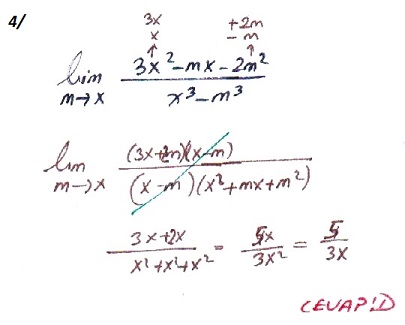 4/
3x +2m
x -m
lim m→x 3x²-mx-2m² / x³-m³
lim m→x (3x+2m)(x-m) / (x-m)(x²+mx+m²)
3x+2x / x²+x²+x² = 5x / 3x² = 5 / 3x
CEVAP:D